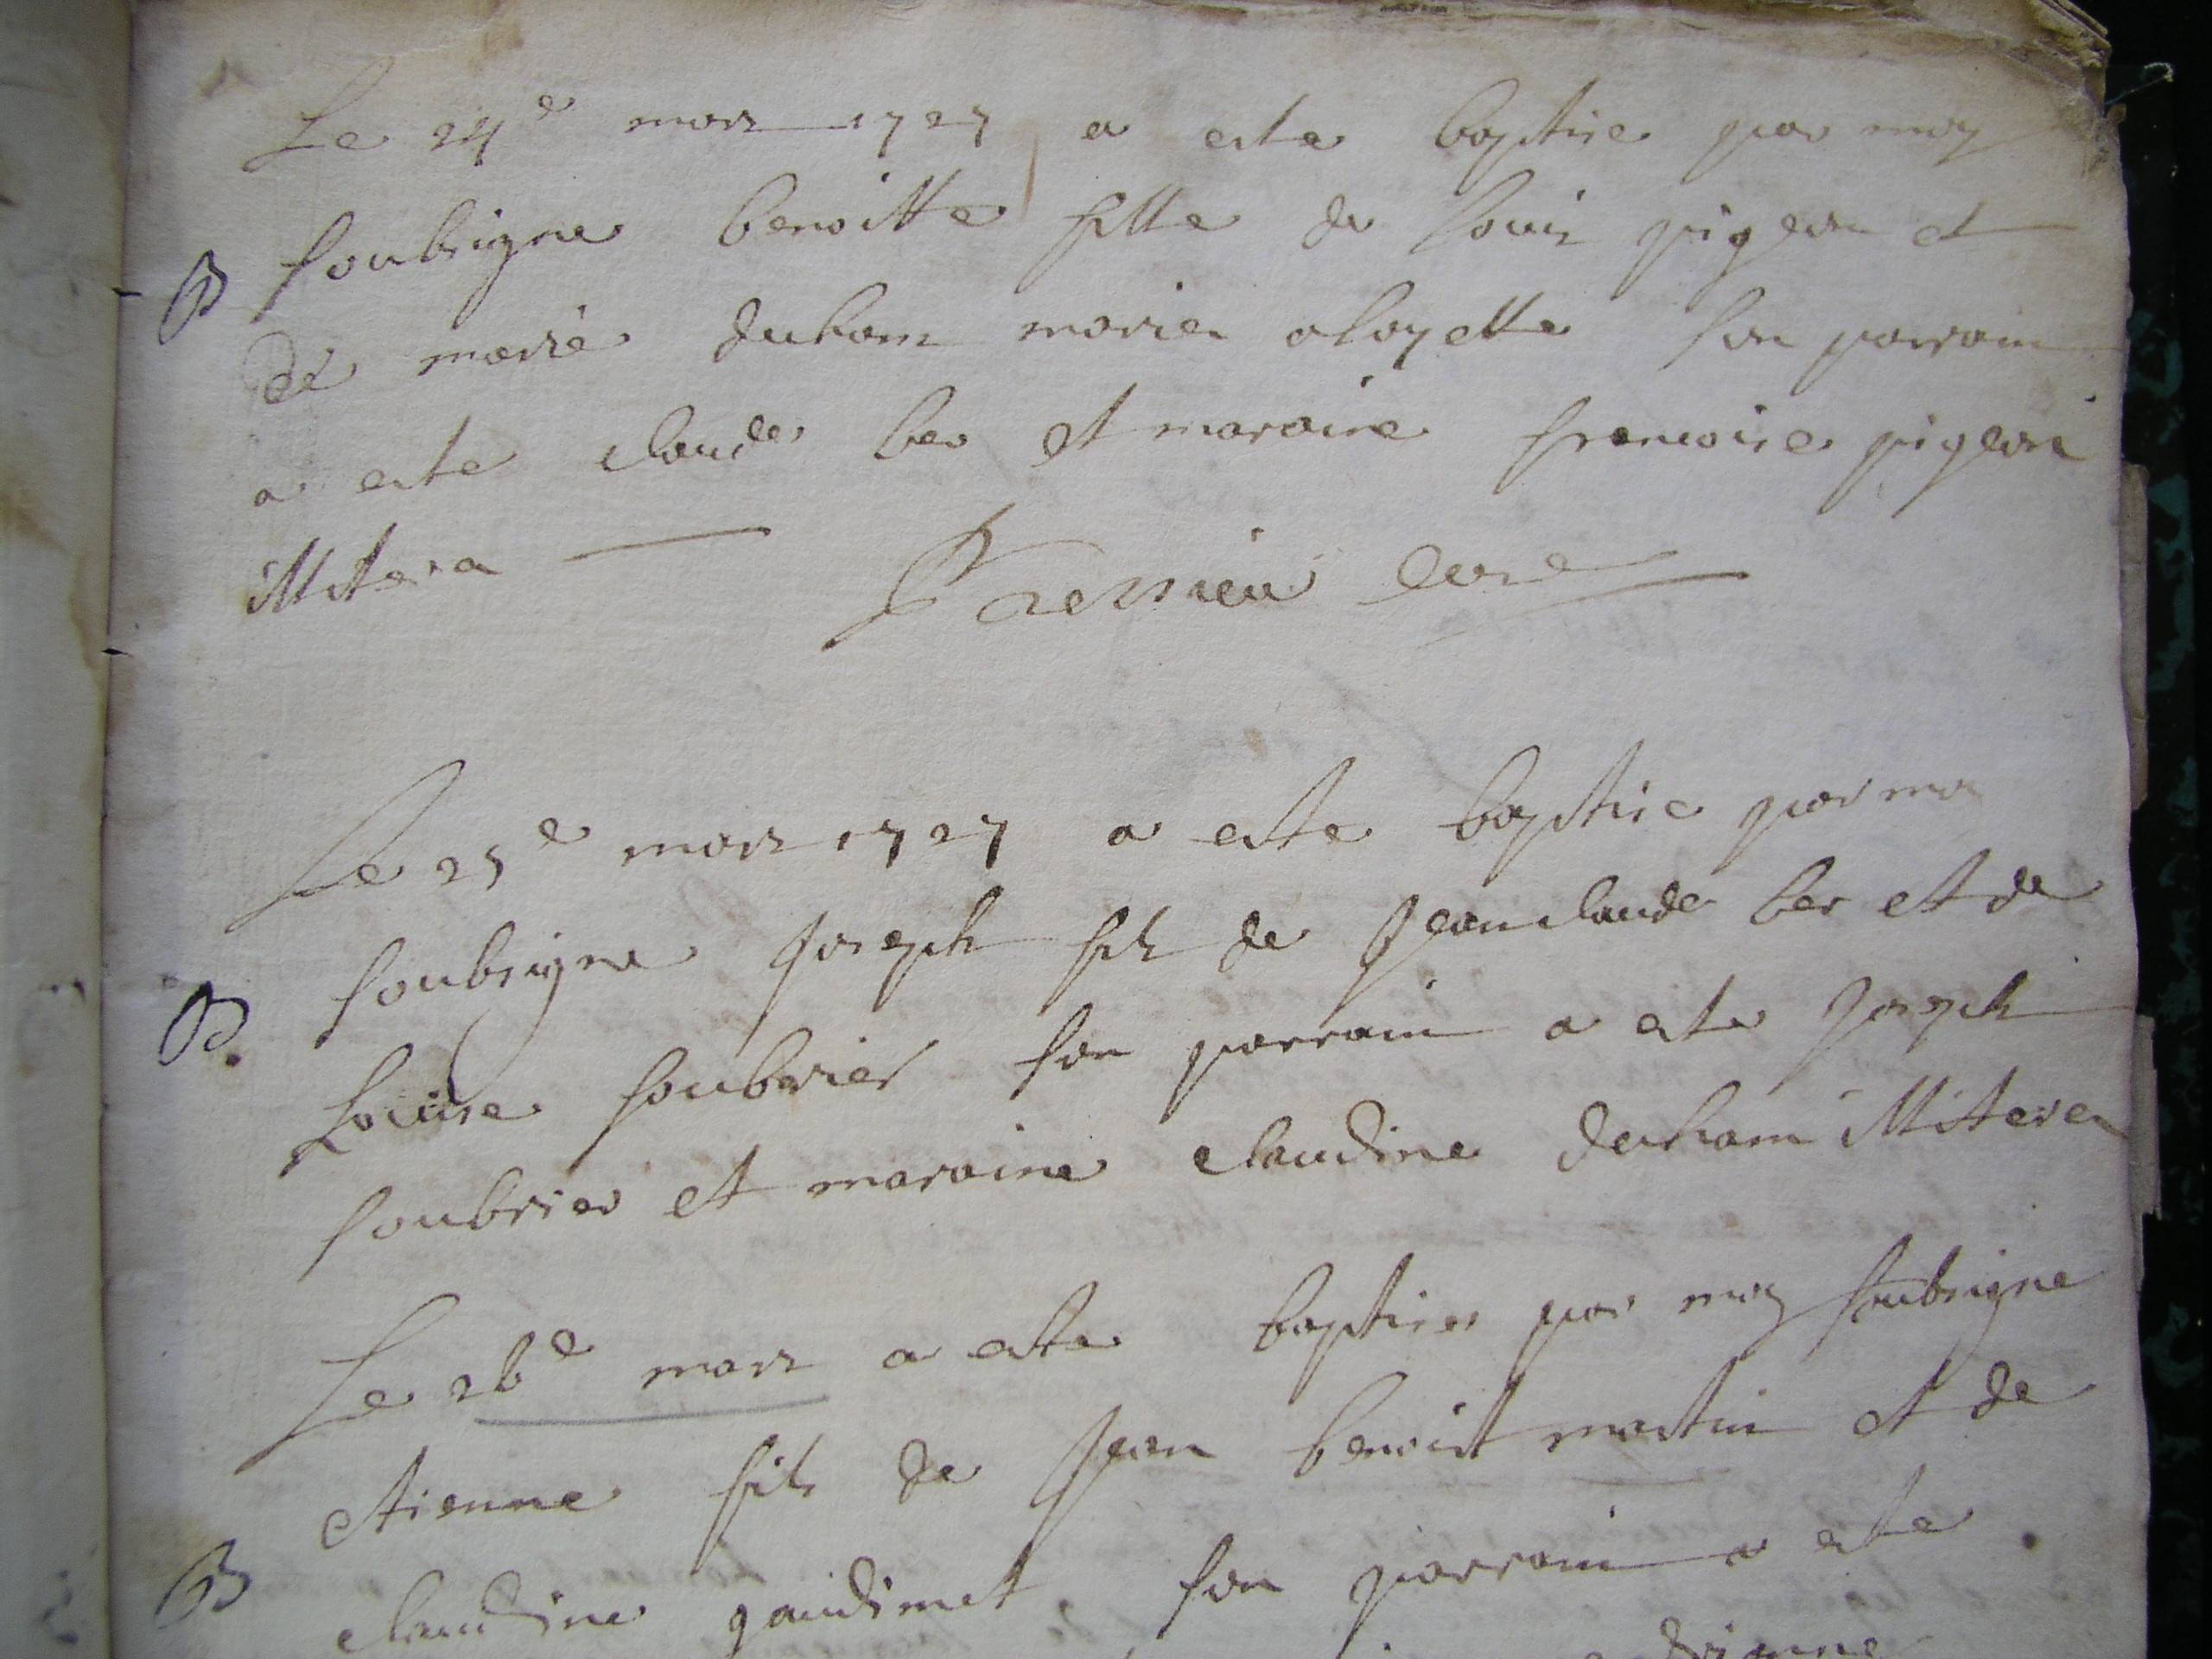 Le 24e mars 1727 a este baptise par moy
B soubsigne benoitte fille de louis pigeon et
de marie duham mariee a loyette son parrain
a este claude ber et maraine francoise pigeon
illitera
cure
Le 25e mars 1727 a este baptise par moy
soubsigne Joseph fils de Jean claude ber et de
B. Louise soubrier son parrain a este Joseph
soubrier et maraine claudine duham illiterea
Le 26e mars a este baptise par moy soubsigne
etienne fils de Jean benoist martin et de
B claudine gaudimet son parrain a este